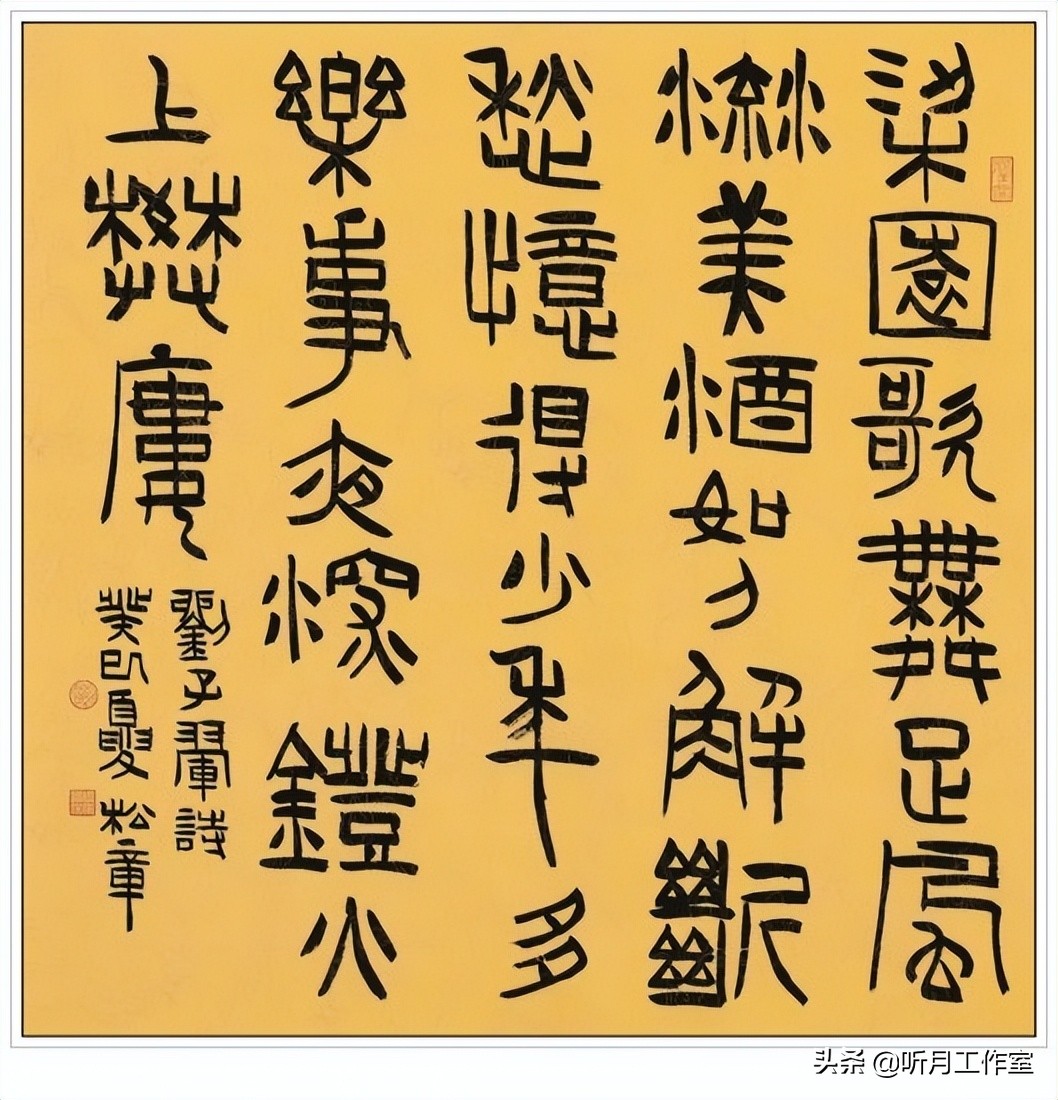 梁園歌舞足風
流美酒如刀解斷
愁憶得少年多
樂事夜深鐙火
上樊廔
劉子翬詩
癸巳夏松章
头条 @听月工作室